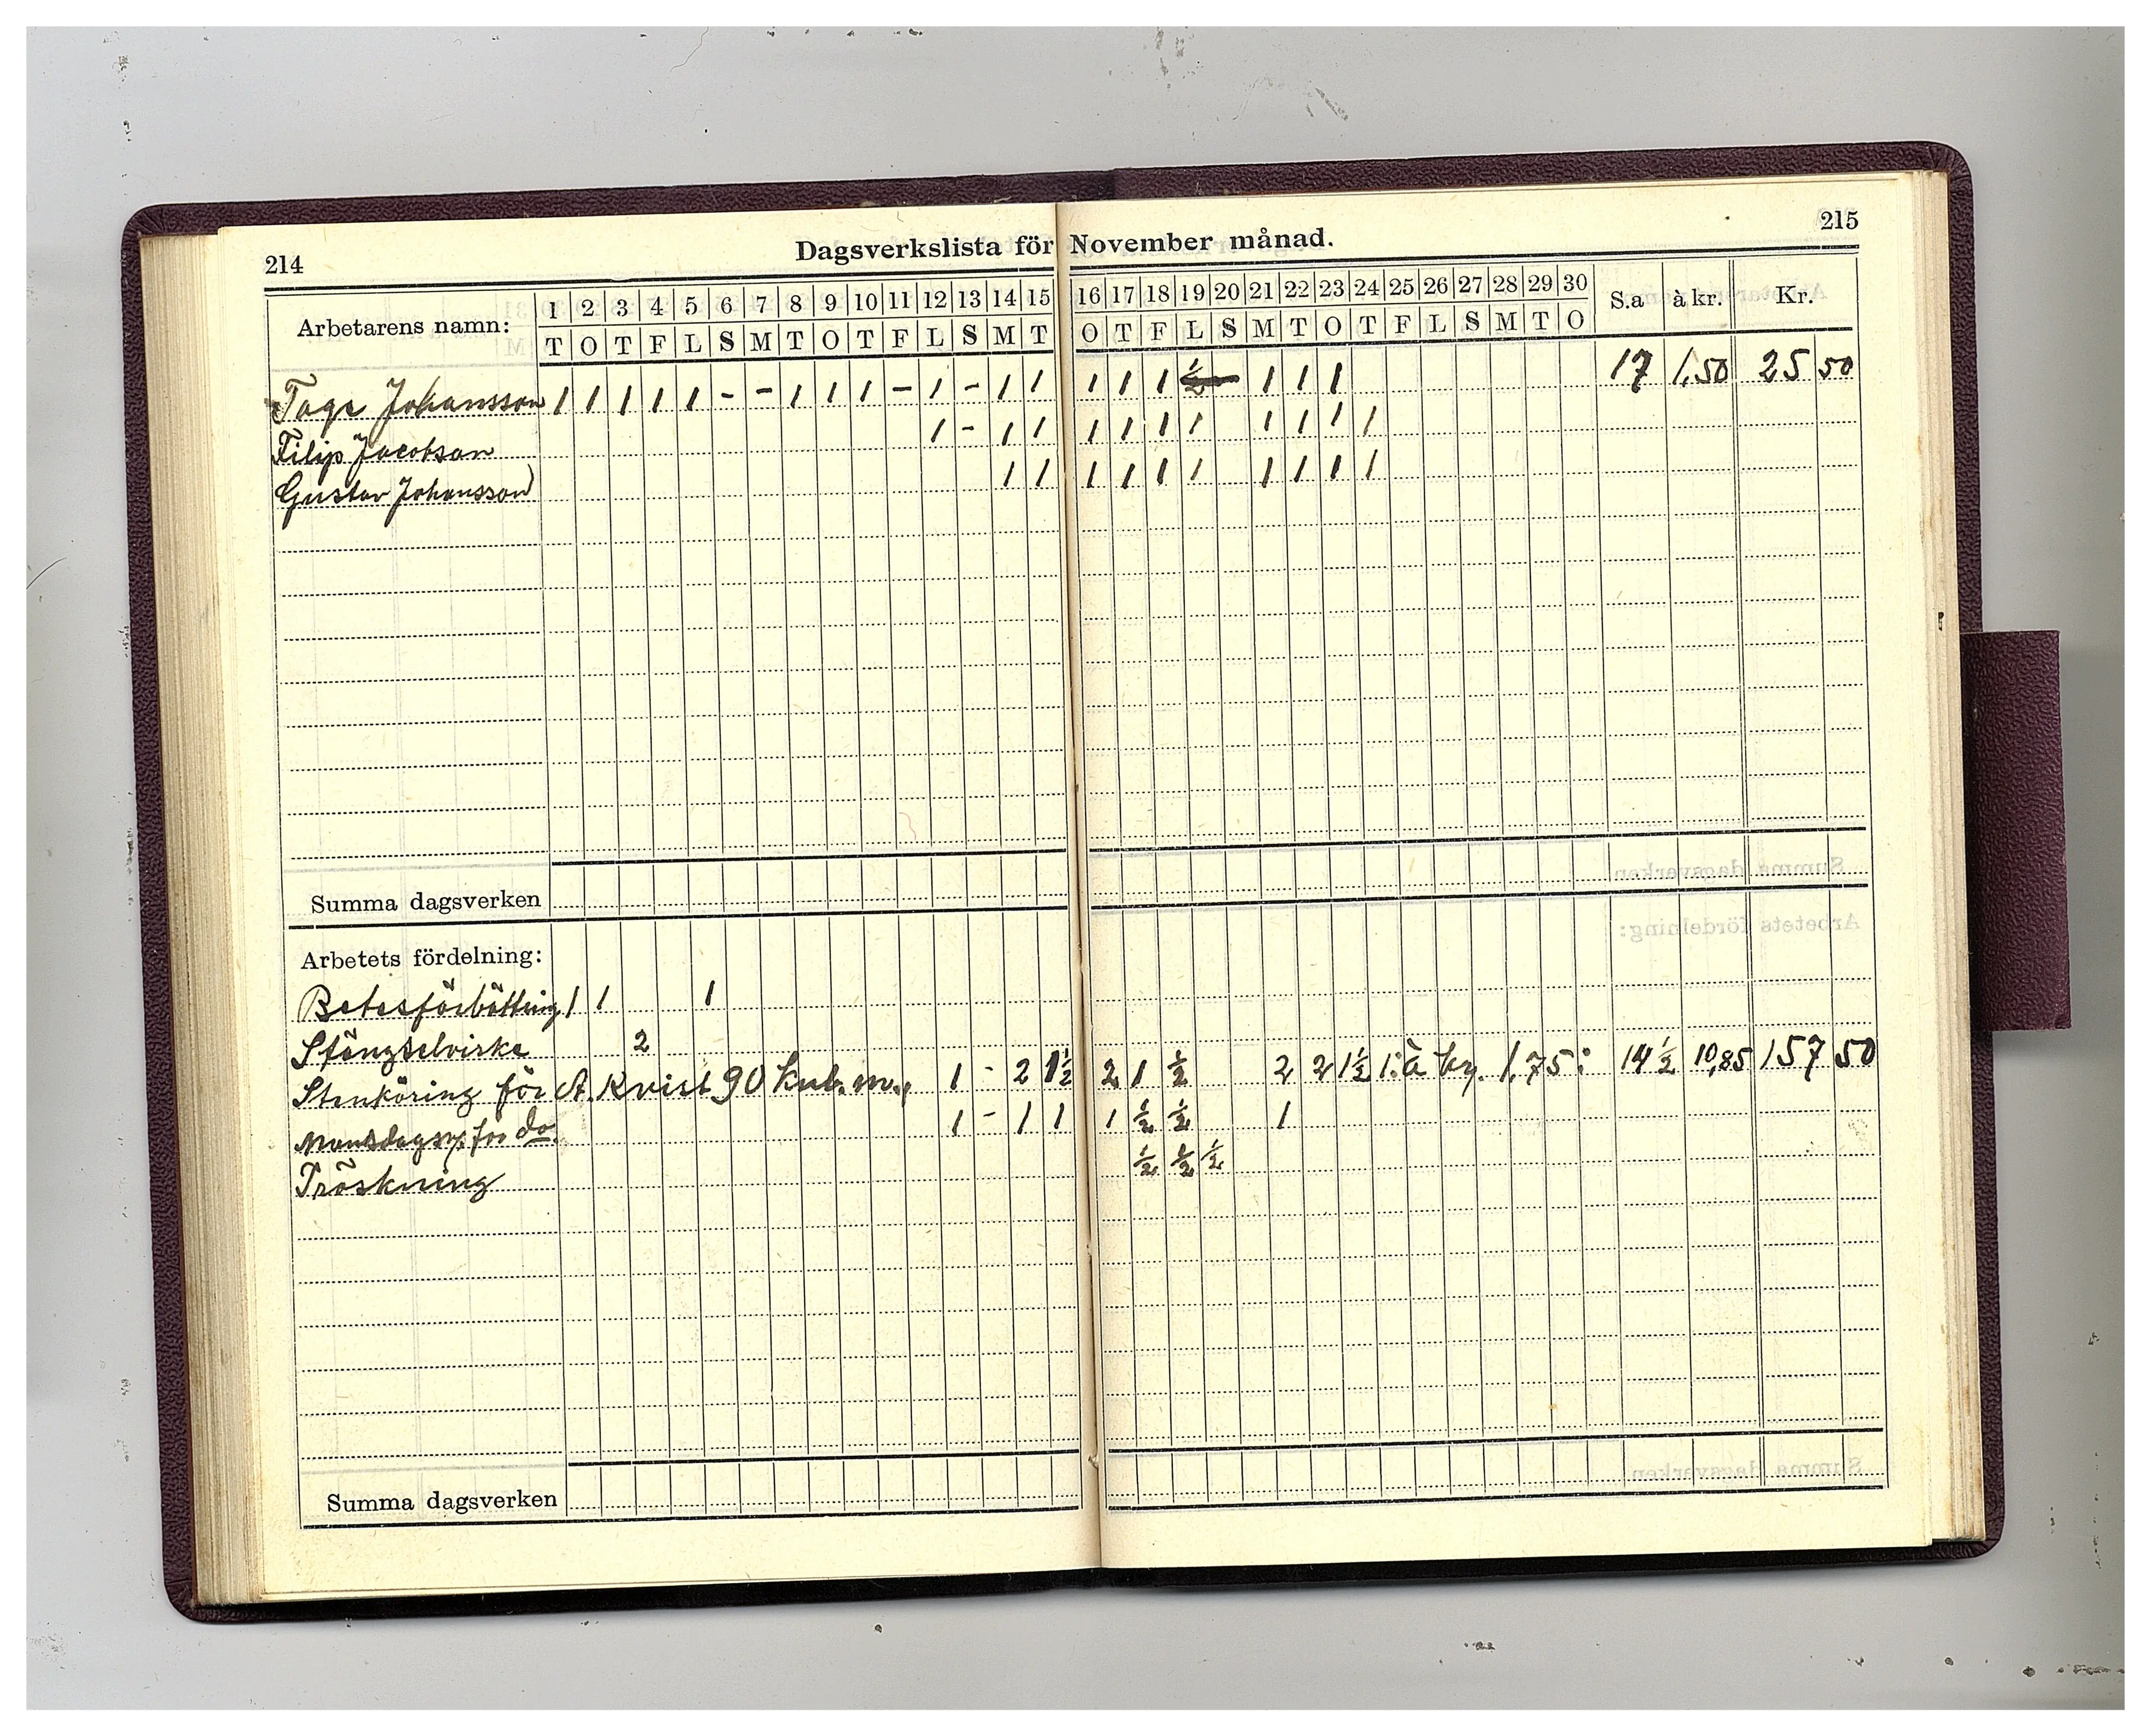 214
Dagsverkslista för November månad.
215
Arbetarens namn: 1 2 3 4 5 6 7 8 9 10 11 12 13 14 15 16 17 18 19 20 21 22 23 24 25 26 27 28 29 30 S.a à kr. Kr.
T O T F L S M T O T F L S M T O T F L S M T O T F L S M T O
Tage Johansson 1 1 1 1 1 - - 1 1 1 - 1 - 1 1 1 1 1 ½ 1 1 1 17 1,50 25 50
Filip Jacobson 1 - 1 1 1 1 1 1 1 1 1 1
Gustav Johansson 1 1 1 1 1 1 1 1 1 1
Summa dagsverken
Arbetets fördelning:
Betesförbättring 1 1 1
Stängselvirke 2
Stenköring för A. Kvist 90 kub. m., 1 - 2 1½ 2 1 ½ 2 2 1½ 1: à kr. 1,75: 14½ 10,85 157 50
Mansdagsv. för do. 1 - 1 1 1 ½ ½ 1
Tröskning ½ ½ ½
Summa dagsverken